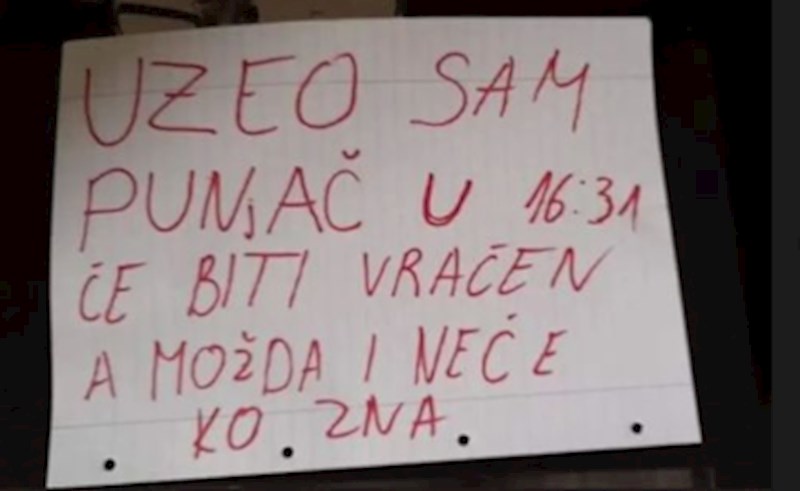 UZEO SAM
PUNjAČ U 16:31
ĆE BITI VRAĆEN
A MOŽDA I NEĆE
KO ZNA